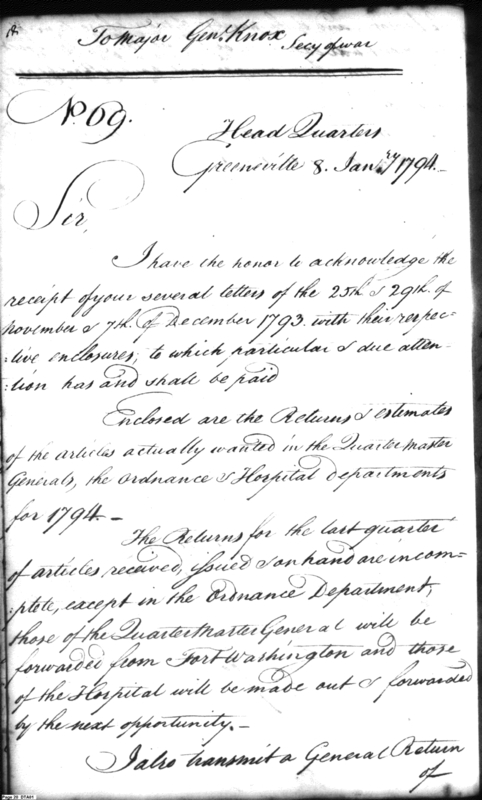 To Major Genl. Knox Secy of war
No. 69.
Head Quarters
Greensville 8. Janry 1794.—
Sir,
I have the honor to acknowledge the
receipt of your several letters of the 25th & 29th. of
November & 7th. of December 1793. with their respec-
:tive enclosures; to which particular & due atten-
:tion has and shall be paid
Enclosed are the Returns & estimates
of the articles actually wanted in the Quarter Master
Generals, the ordnance & Hospital departments
for 1794.—
The Returns for the last quarter
of articles received, issued & on hand are incom-
:plete, except in the Ordnance Department,
those of the Quarter Master General will be
forwarded from Fort Washington and those
of the Hospital will be made out & forwarded
by the next opportunity.—
I also transmit a General Return
of